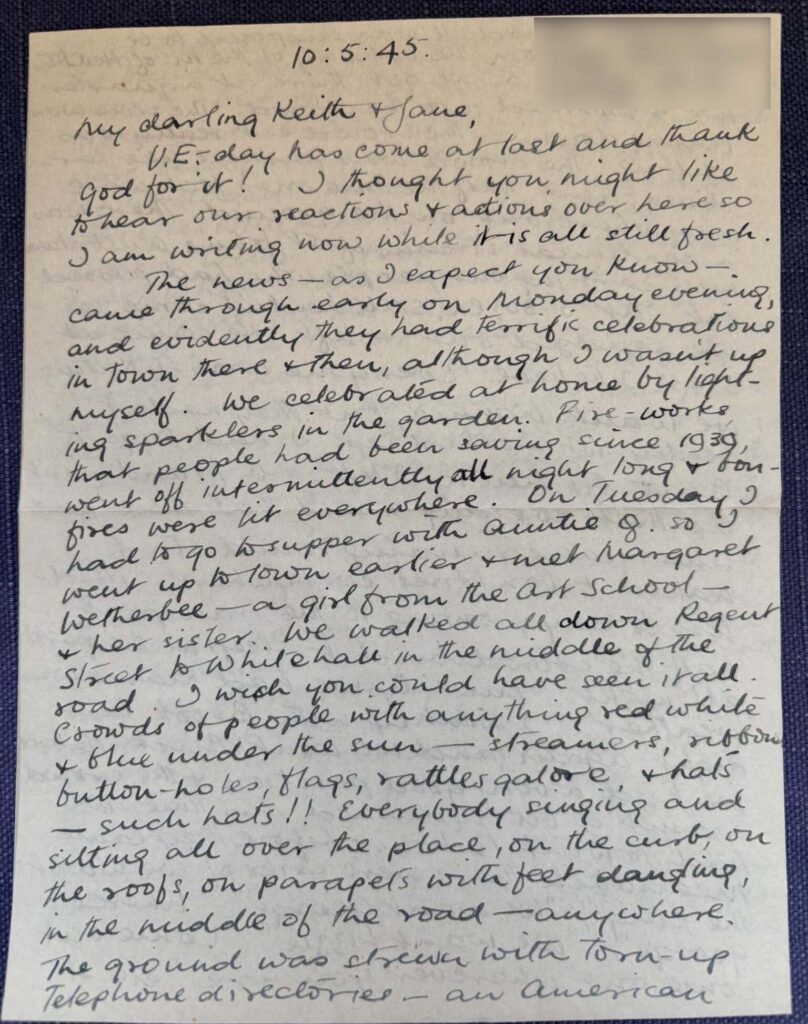 10:5:45.
My darling Keith & Jane,
V.E.-day has come at last and thank
God for it! I thought you might like
to hear our reactions & actions over here so
I am writing now while it is all still fresh.
The news – as I expect you know –
came through early on Monday evening,
and evidently they had terrific celebrations
in town there & then, although I wasn't up
myself. We celebrated at home by light-
ing sparklers in the garden. Fire-works
that people had been saving since 1939,
went off intermittently all night long & bon-
fires were lit everywhere. On Tuesday I
had to go to supper with Auntie G. so I
went up to town earlier & met Margaret
Wetherbee – a girl from the Art School –
& her sister. We walked all down Regent
Street to Whitehall in the middle of the
road. I wish you could have seen it all.
Crowds of people with anything red white
& blue under the sun – streamers, ribbon
button-holes, flags, rattles galore, & hats
– such hats!! Everybody singing and
sitting all over the place, on the curb, on
the roofs, on parapets with feet dangling,
in the middle of the road – anywhere.
The ground was strewn with torn-up
Telephone directories – an American